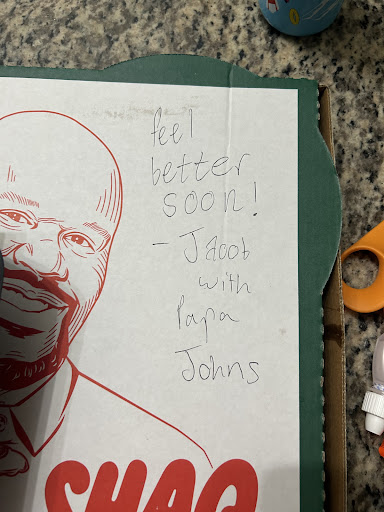 feel
better
soon!
- Jacob
with
Papa
Johns
SHAQ